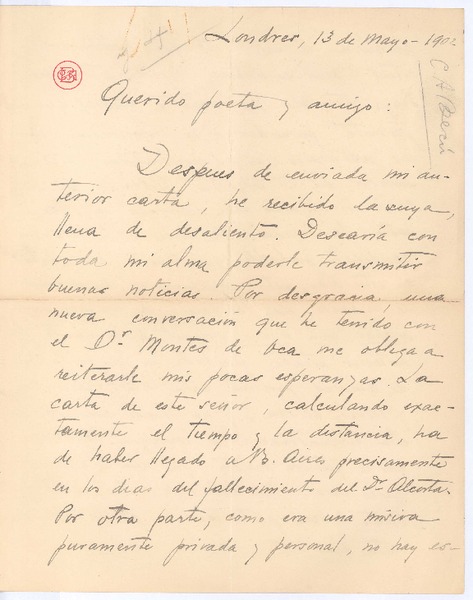 Londres, 13 de Mayo - 190
C. A. Becú
Querido poeta y amigo:
Despues de enviada mi an-
terior carta, he recibido la suya,
llena de desaliento. Desearía con
toda mi alma poderle transmitir
buenas noticias. Por desgracia, una
nueva conversación que he tenido con
el Dr. Montes de Oca me obliga a
reiterarle mis pocas esperanzas. La
carta de este señor, calculando exac-
tamente el tiempo y la distancia, ha
de haber llegado a B. Aires precisamente
en los dias del fallecimiento del Dr. Alcorta.
Por otra parte, como era una misiva
puramente privada y personal, no hay es-